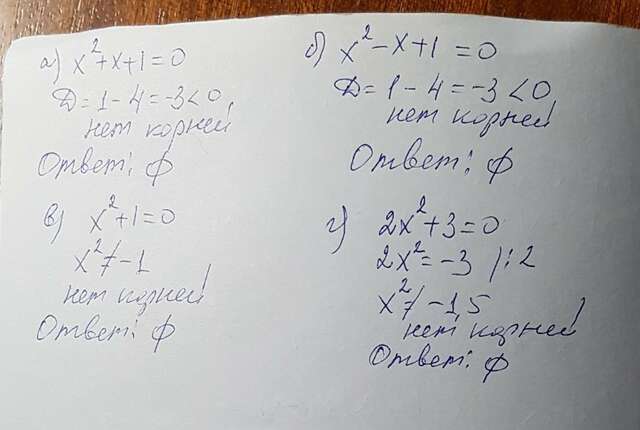 а) x²+x+1=0
Д=1-4=-3<0,
нет корней
Ответ: ∅
б) x²-x+1=0
Д=1-4=-3<0,
нет корней
Ответ: ∅
в) x²+1=0
x²≠-1
нет корней
Ответ: ∅
г) 2x²+3=0
2x²=-3 |:2
x²≠-1,5
нет корней
Ответ: ∅